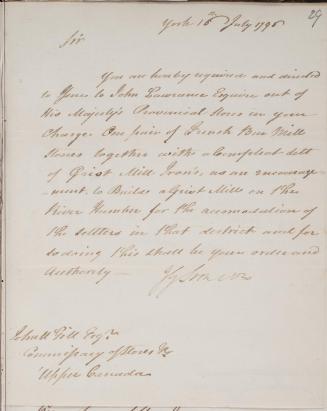 29
York 16th July 1796
Sir
You are hereby required and directed
to Issue to John Lawrance Esquire out of
His Majesty's Provincial Stores in your
Charge. One pair of French Bur Mill
Stones together with a Compleat Sett
of Grist Mill Irons, as an encourage
ment, to Build a Grist Mill on the
River Humber for the accomodation of
the settlers in that district and for
so doing this shall be your order and
Authority —
John McGill Esqr.
Commissary of Stores &c
Upper Canada